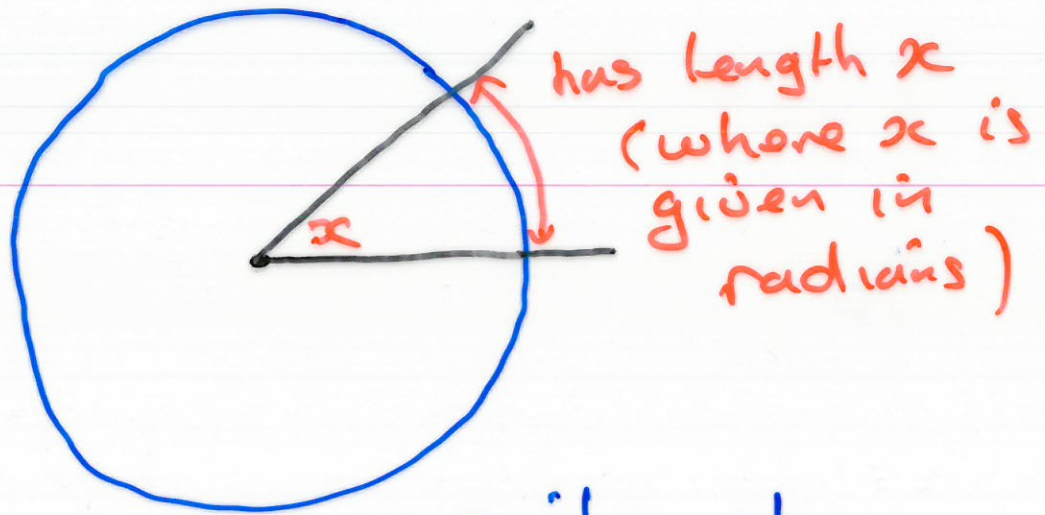 has length x
(where x is
given in
radians)
x